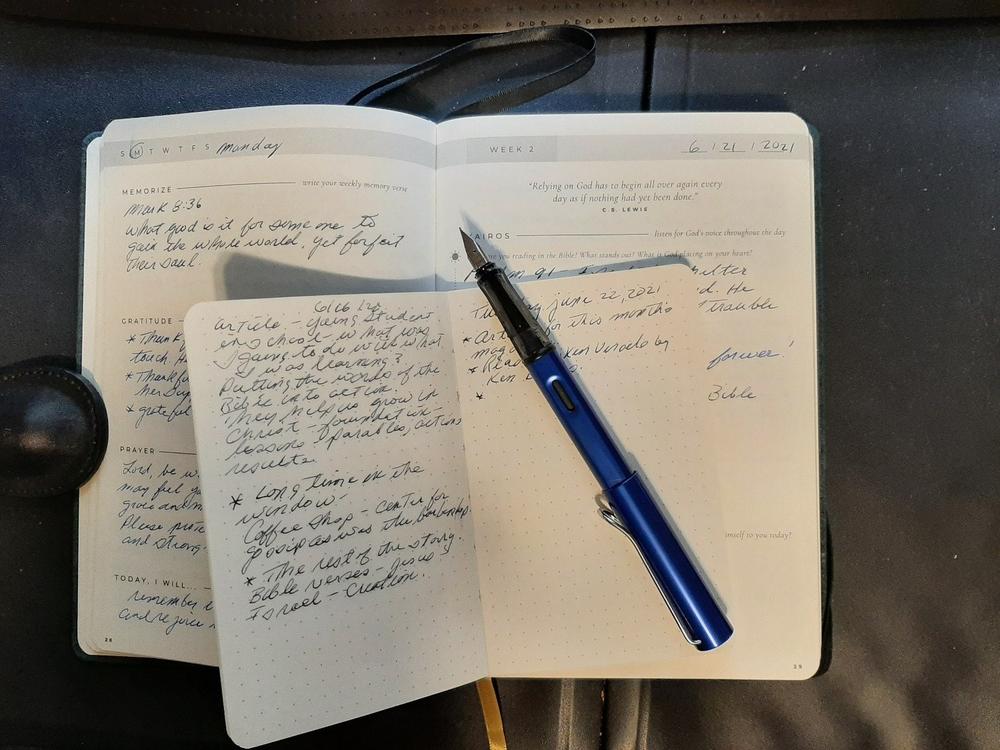 S M T W T F S Monday
MEMORIZE write your weekly memory verse
Mark 8:36
What good is it for someone to
gain the whole world, yet forfeit
their soul.
GRATITUDE
* Thank
touch
* Thankful
her
* grateful
PRAYER
Lord, be
may feel
grace and
Please
and strong
TODAY, I WILL...
remember
and rejoice
28
WEEK 2 6 / 21 / 2021
"Relying on God has to begin all over again every
day as if nothing had yet been done."
C.S. LEWIS
AIROS listen for God's voice throughout the day
you reading in the Bible? What stands out? What is God placing on your heart?
91
d. He
Trouble
forever!
Bible
imself to you today?
29
6/16
Article - young student
in school - what was
I going to do with what
I was learning?
Putting the words of the
Bible into action.
They help us grow in
Christ - foundation -
lessons - parables, actions
results.
* Long time in the
window -
Coffee shop - center for
gossip as was the barbershop.
* The rest of the story.
Bible verses - Jesus
Israel - Creation.
June 22, 2021
* for this months
* Ken by
Ken
*